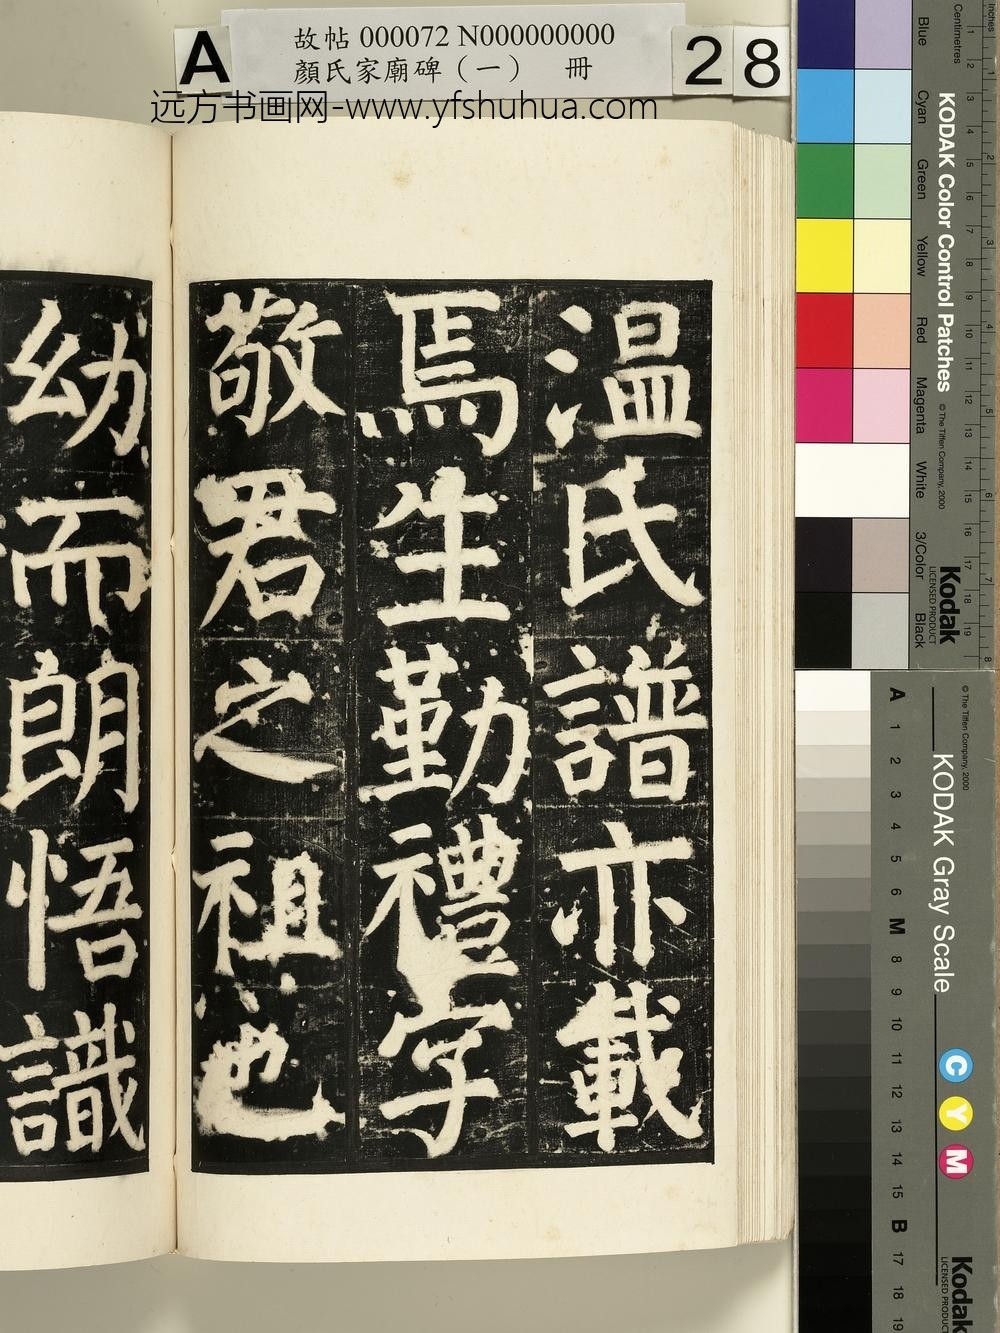 A
故帖 000072 N000000000
顏氏家廟碑（一） 冊
28
远方书画网-www.yfshuhua.com
温氏譜亦載
焉生勤禮字
敬君之祖也
幼而朗悟識
Inches
Centimetres
1 2 3 4 5 6 7 8
1 2 3 4 5 6 7 8 9 10 11 12 13 14 15 16 17 18 19
KODAK Color Control Patches
© The Tiffen Company, 2000
Kodak
LICENSED PRODUCT
Blue
Cyan
Green
Yellow
Red
Magenta
White
3/Color
Black
KODAK Gray Scale
© The Tiffen Company, 2000
C Y M
Kodak
LICENSED PRODUCT
A 1 2 3 4 5 6 M 8 9 10 11 12 13 14 15 B 17 18 19